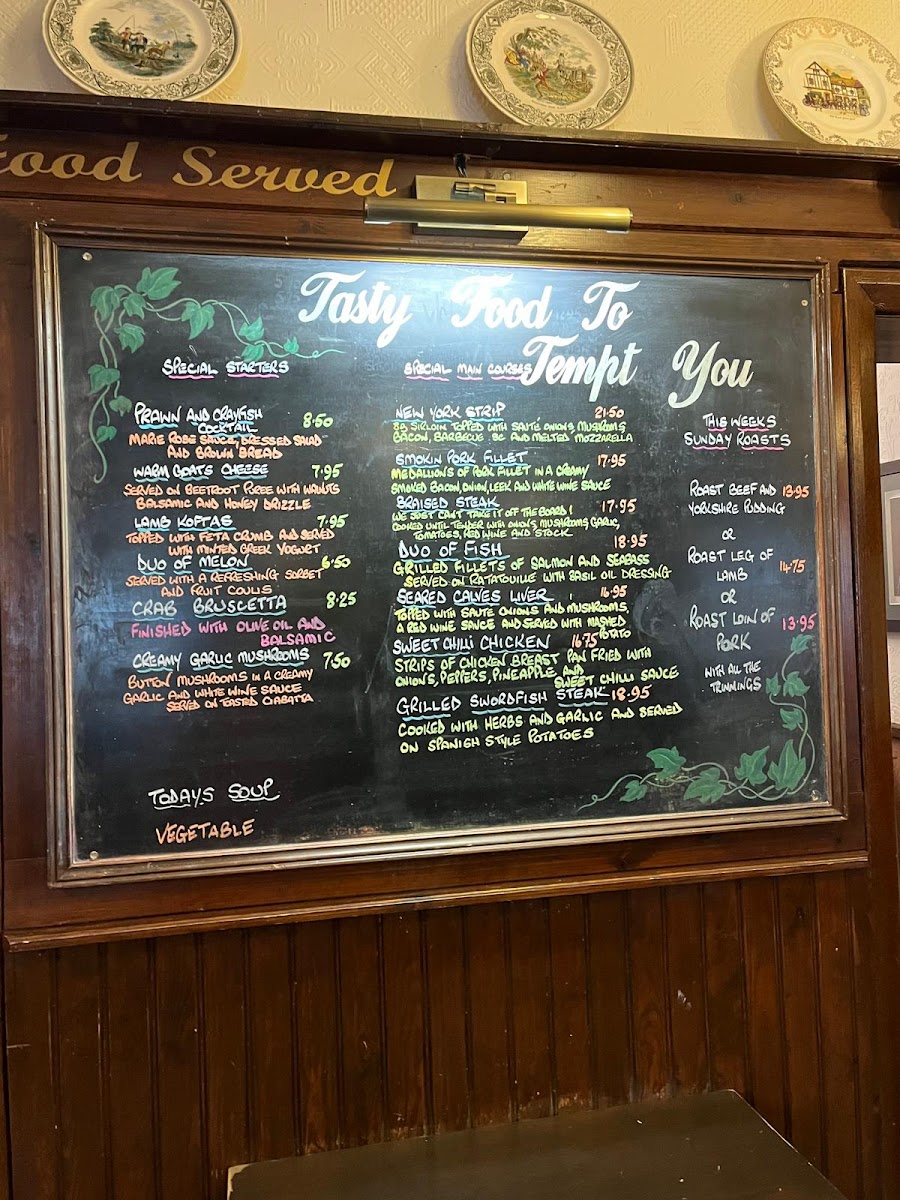 Food Served
Tasty Food To
Tempt You
SPECIAL STARTERS
PRAWN AND CRAYFISH 8·50
COCKTAIL
MARIE ROSE SAUCE, DRESSED SALAD
AND BROWN BREAD
WARM GOATS CHEESE 7·95
SERVED ON BEETROOT PUREE WITH WALNUTS
BALSAMIC AND HONEY DRIZZLE
LAMB KOFTAS 7·95
TOPPED WITH FETA CRUMB AND SERVED
WITH MINTED GREEK YOGURT
DUO OF MELON 6·50
SERVED WITH A REFRESHING SORBET
AND FRUIT COULIS
CRAB BRUSCETTA 8·25
FINISHED WITH OLIVE OIL AND
BALSAMIC
CREAMY GARLIC MUSHROOMS 7·50
BUTTON MUSHROOMS IN A CREAMY
GARLIC AND WHITE WINE SAUCE
SERVED ON TOASTED CIABATTA
TODAYS SOUP
VEGETABLE
SPECIAL MAIN COURSES
NEW YORK STRIP 21·50
SIRLOIN TOPPED WITH SAUTÉ ONIONS, MUSHROOMS
BACON, BARBEQUE SC AND MELTED MOZZARELLA
SMOKIN PORK FILLET 17·95
MEDALLIONS OF PORK FILLET IN A CREAMY
SMOKED BACON, ONION, LEEK AND WHITE WINE SAUCE
BRAISED STEAK 17·95
WE JUST CAN'T TAKE IT OFF THE BOARD!
COOKED UNTIL TENDER WITH ONIONS, MUSHROOMS, GARLIC,
TOMATOES, RED WINE AND STOCK
DUO OF FISH 18·95
GRILLED FILLETS OF SALMON AND SEABASS
SERVED ON RATATOUILLE WITH BASIL OIL DRESSING
SEARED CALVES LIVER 16·95
TOPPED WITH SAUTE ONIONS AND MUSHROOMS,
A RED WINE SAUCE AND SERVED WITH MASHED
POTATO
SWEET CHILLI CHICKEN 16·75
STRIPS OF CHICKEN BREAST PAN FRIED WITH
ONIONS, PEPPERS, PINEAPPLE AND
SWEET CHILLI SAUCE
GRILLED SWORDFISH STEAK 18·95
COOKED WITH HERBS AND GARLIC AND SERVED
ON SPANISH STYLE POTATOES
THIS WEEKS
SUNDAY ROASTS
ROAST BEEF AND 13·95
YORKSHIRE PUDDING
OR
ROAST LEG OF 14·75
LAMB
OR
ROAST LOIN OF 13·95
PORK
WITH ALL THE
TRIMMINGS